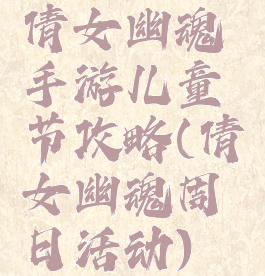 倩女幽魂
手游儿童
节攻略(倩
女幽魂周
日活动)